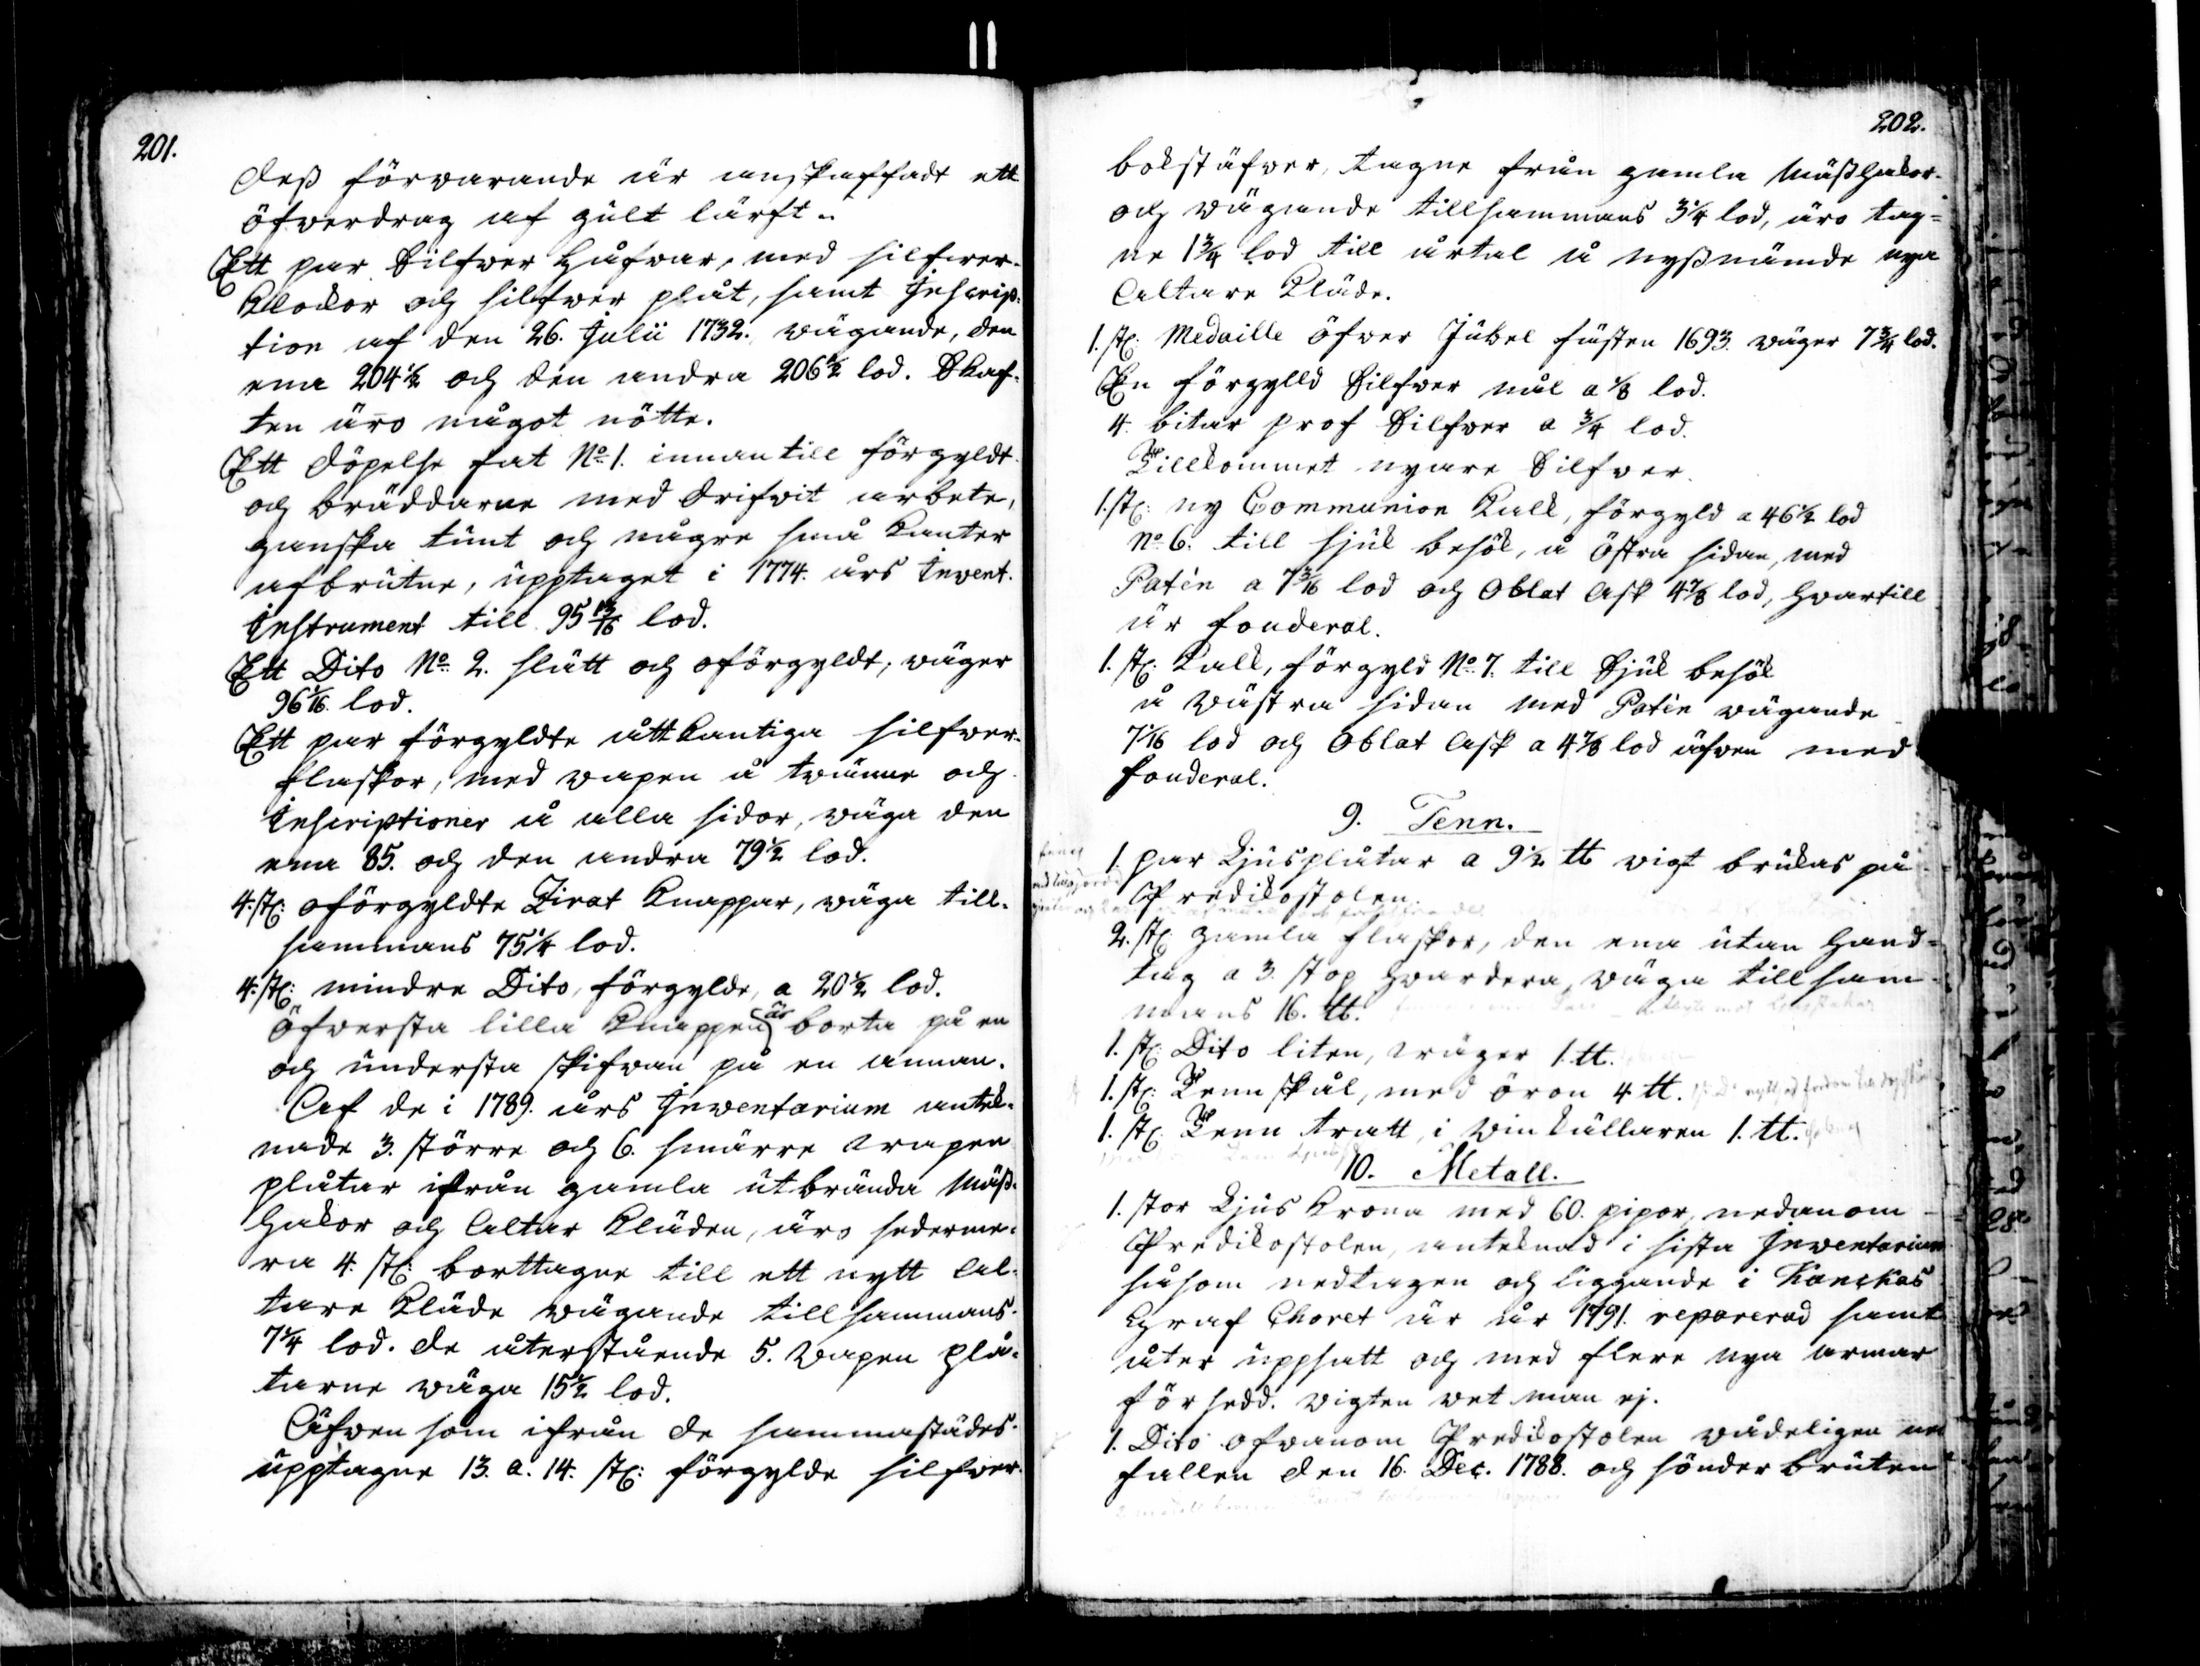 201.
dess förvarande är anskaffadt ett
öfverdrag af gult lärft.
Ett par Silfwer Håfvar, med silfwer-
klockor och silfwer plåt, samt Inscrip-
tion af den 26. Julii 1732. vägande, den
ena 204 1/2 och den andra 206 1/2 lod. Skaf-
ten äro något nötte.
Ett döpelse fat No 1. innan till förgyldt
och bräddarne med drifvit arbete,
ganska tunt och några små kanter
afbrutne, upptaget i 1774. års Invent.
Instrument till 95 13/16 lod.
Ett Dito No 2. slätt och oförgyldt, väger
96 1/16. lod.
Ett par förgyldte åttkantiga silfwer-
flaskor, med vapen å tvänne och
Inscriptioner å alla sidor, väga den
ena 85. och den andra 79 1/2 lod.
4. st: oförgyldte Zirat knappar, väga till-
sammans 75 1/4 lod.
4. st: mindre Dito, förgylde, a 20 1/2 lod.
Öfversta lilla knappen är borta på en
och understa skifvan på en annan.
Af de i 1789. års Inventarium anteck-
nade 3. större och 6. smärre vapen
plåtar ifrån gamla utbrända Mäss-
hakor och Altar kläden, äro sederme-
ra 4. st: borttagne till ett nytt Al-
tare kläde vägande tillsammans
7 1/4 lod. de återstående 5. vapen plå-
tarne väga 15 1/2 lod.
Äfwen som ifrån de sammastädes
upptagne 13. a. 14. st: förgylde silfwer-
202.
bokstäfver, tagne från gamla Mässhakor
och vägande tillsammans 3 1/4 lod, äro tag-
ne 1 3/4 lod till årtal å nyssnämde nya
Altare kläde.
1. st: Medaille öfver Jubel fästen 1693. väger 7 3/4 lod.
En förgylld Silfver nål a 1/8 lod.
4. bitar prof Silfver a 3/4 lod.
Tillkommet nyare Silfver.
1. st: ny Communion Kalk, förgyld a 46 1/2 lod
No 6. till sjuk besök, å östra sidan, med
Patén a 7 3/16 lod och Oblat Ask 4 7/8 lod, hvartill
är fouderal.
1. st: Kalk, förgyld No 7. till Sjuk besök
å västra sidan med Patén vägande
7 1/16 lod och Oblat Ask a 4 7/8 lod äfven med
fouderal.
9. Tenn.
1. par Ljusplåtar a 9 1/2 tt vigt brukas på
Predikostolen.
2. st: gamla flaskor, den ena utan hand-
tag a 3. stop hvardera, väga tillsam-
mans 16. tt.
1. st: Dito liten, väger 1. tt.
1. st: Tenn skål, med öron 4 tt.
1. st: Tenn tratt, i vin källaren 1. tt.
10. Metall.
1. stor Ljus krona med 60. pipor, nedanom
Predikostolen, antecknad i sista Inventarium
såsom nedtagen och liggande i Kanckas
Graf Choret är år 1791. reparerad samt
åter uppsatt och med flere nya armar
försedd. vigten vet man ej.
1. Dito ofvanom Predikostolen vådeligen ned
fallen den 16. Dec. 1788. och sönder bruten